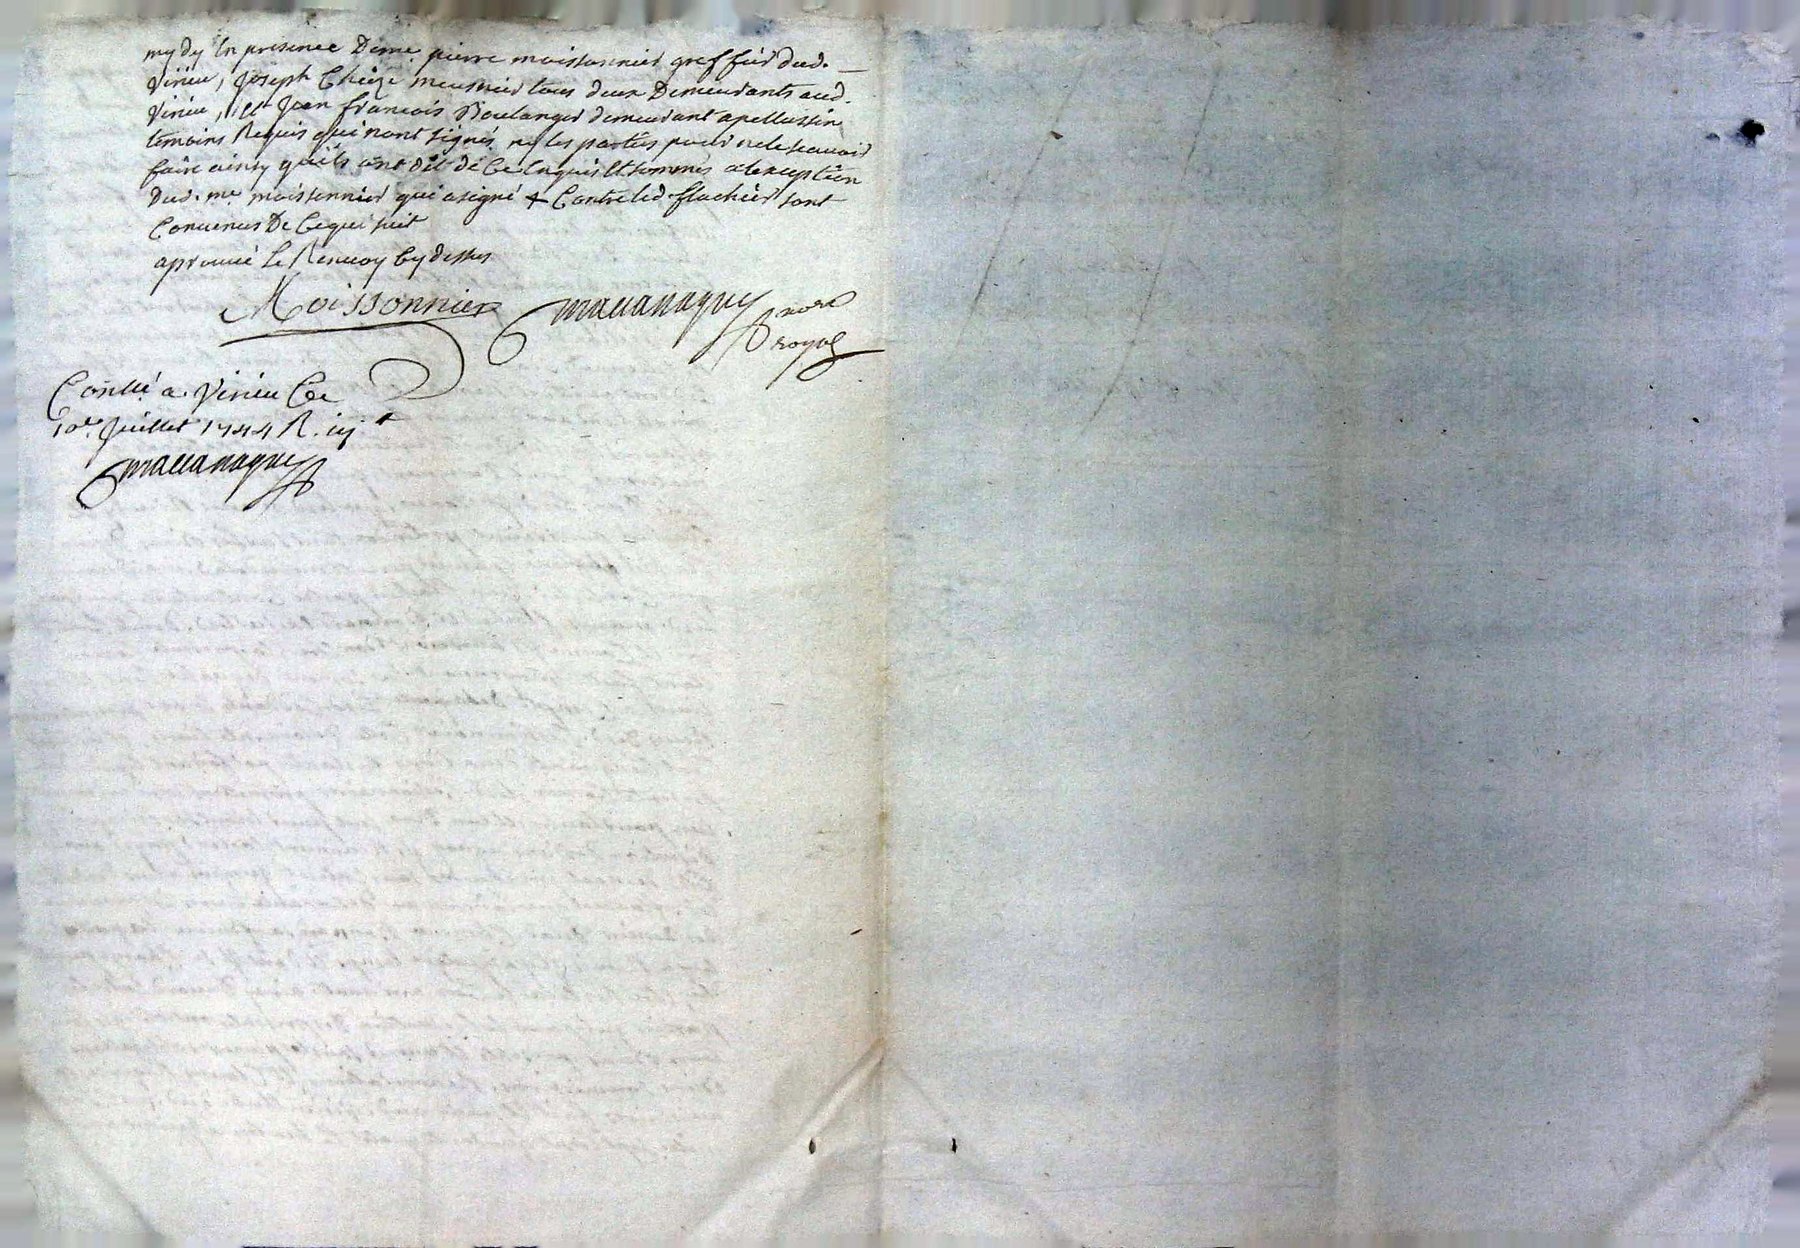 mydy En presence De me. pierre moissonnier greffier dud.
Virieu, Joseph Cheize meusnier tous deux Demeurants aud.
Virieu, Et Jean francois Boulanger demeurant apellussin
temoins Requis qui nont signés ny les parties pour ne le scavoir
faire ainsy quils ont dit de Ce Enquis Et sommés a lexception
Dud. me. moissonnier qui a signé + Contre led. flachier sont
Convenus De Cequi suit
aprouvé Le Renvoy Cy dessus
Moissonnier
nore
royal
Contlé a Virieu Ce
10e. Juillet 1744 R. iij